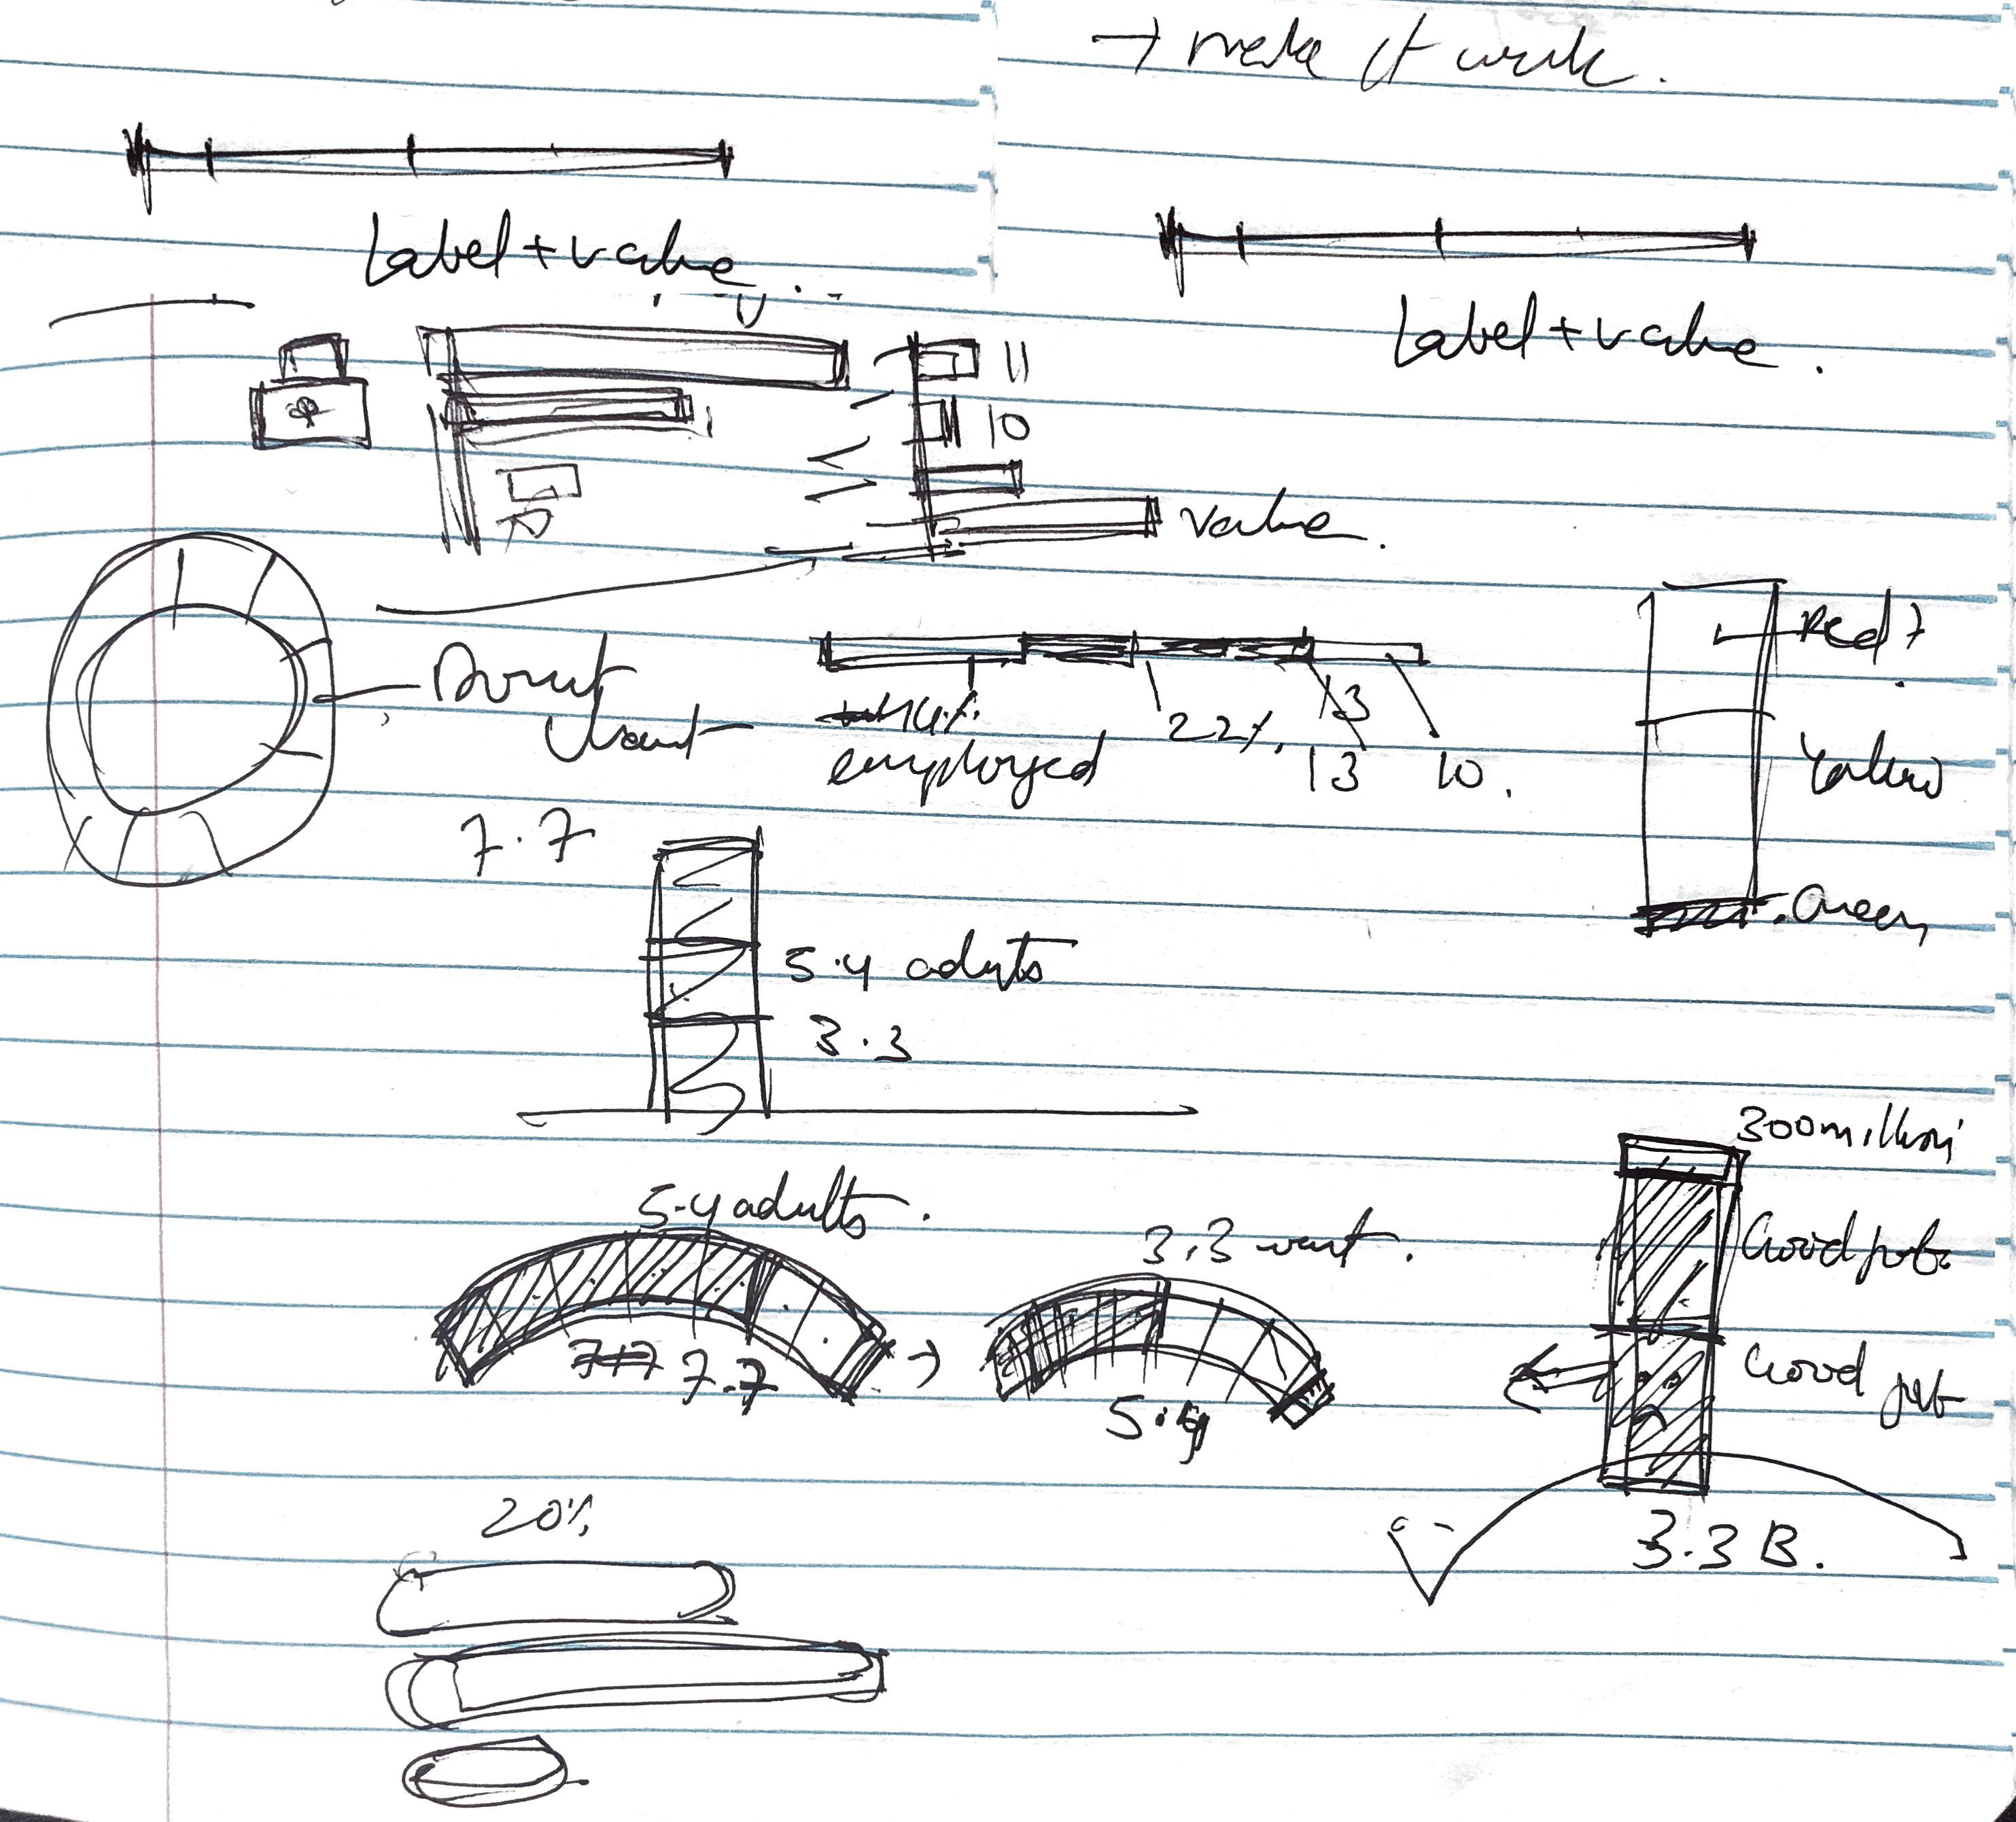 → make it work.
Label + value.
Label + value.
11
10
value.
Donut
chart
employed
22%.
13
13
10.
Red?
Yellow
Green
7.7
5.4 adults
3.3
300 million
Good job
Good job
3.3 B.
5.4 adults.
7.7
→
3.3 want.
5.4
20%